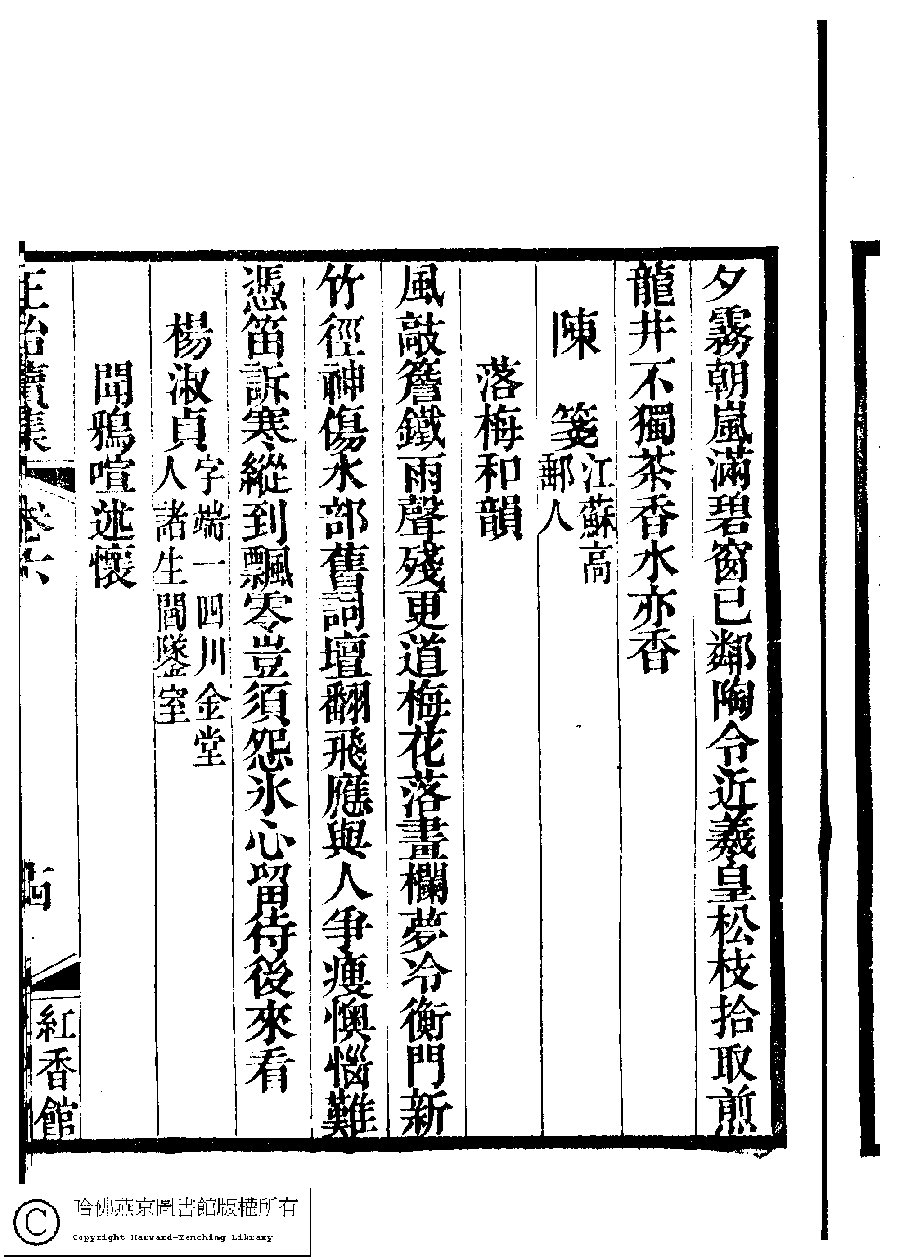 夕霧朝嵐滿碧窗已鄰陶令近羲皇松枝拾取煎
龍井不獨茶香水亦香
陳　箋江蘇高
郵人
落梅和韻
風敲簷鐵雨聲殘更道梅花落畫欄夢冷衡門新
竹徑神傷水部舊詞壇翻飛應與人爭瘦懊惱難
憑笛訴寒縱到飄零豈須怨氷心留待後來看
楊淑貞字端一四川金堂
人諸生閻墜室
聞鴉喧述懷
正始續集
卷六
紅香館
哈佛燕京圖書館版權所有
Copyright Harvard-Yenching Library